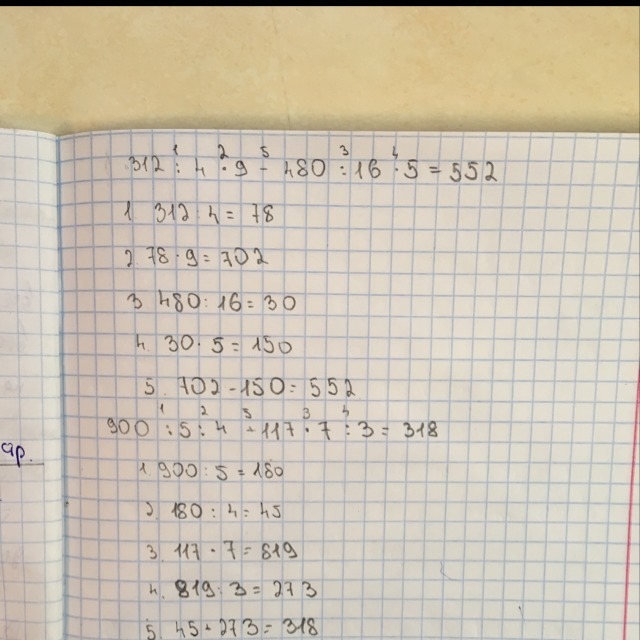 312 : 4 · 9 - 480 : 16 · 5 = 552
1 312 : 4 = 78
2 78 · 9 = 702
3 480 : 16 = 30
4. 30 · 5 = 150
5. 702 - 150 = 552
900 : 5 : 4 + 117 · 7 : 3 = 318
1. 900 : 5 = 180
2. 180 : 4 = 45
3. 117 · 7 = 819
4. 819 : 3 = 273
5. 45 + 273 = 318
ар.